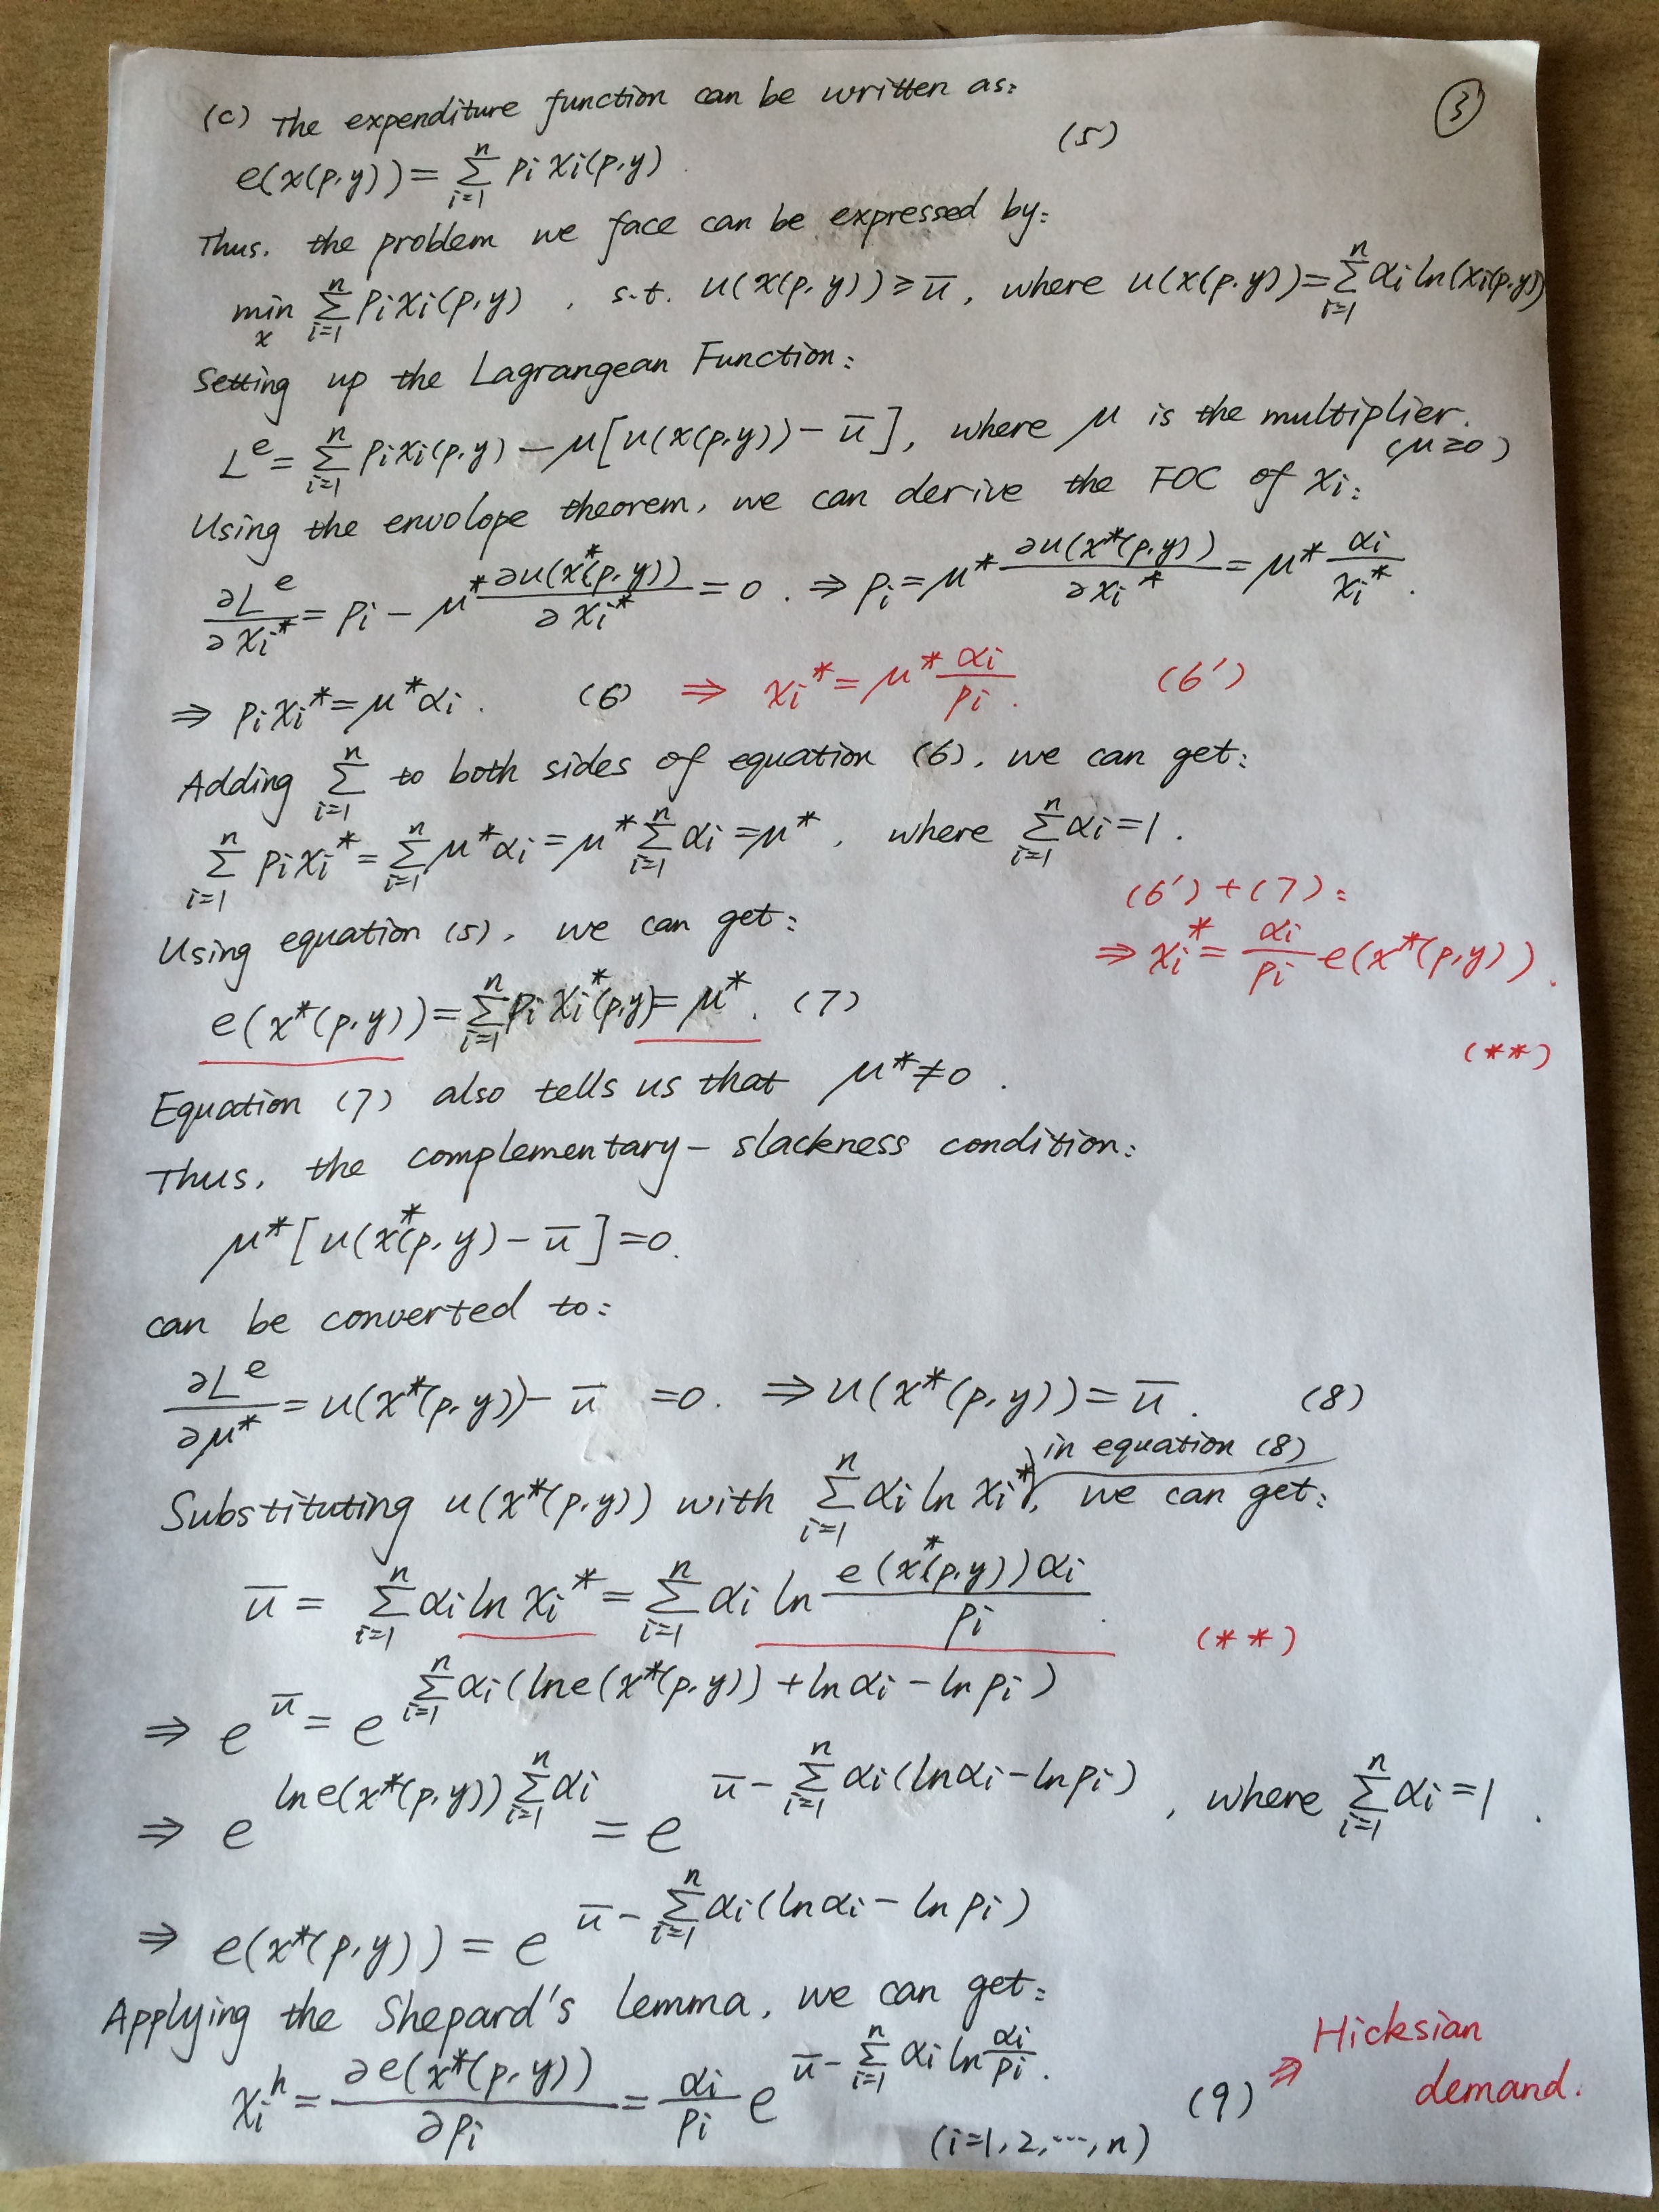 ③
(c) The expenditure function can be written as:
e(x(p,y)) = ∑_{i=1}^{n} p_i x_i(p,y) (5)
Thus, the problem we face can be expressed by:
min_x ∑_{i=1}^{n} p_i x_i(p,y) , s.t. u(x(p,y)) ≥ ū, where u(x(p,y)) = ∑_{i=1}^{n} α_i ln(x_i(p,y))
Setting up the Lagrangean Function:
L^e = ∑_{i=1}^{n} p_i x_i(p,y) − μ[u(x(p,y)) − ū], where μ is the multiplier.
(μ≥0)
Using the envolope theorem, we can derive the FOC of x_i:
∂L^e/∂x_i* = p_i − μ* ∂u(x*(p,y))/∂x_i* = 0. ⇒ p_i = μ* ∂u(x*(p,y))/∂x_i* = μ* α_i/x_i*.
⇒ p_i x_i* = μ* α_i. (6) ⇒ x_i* = μ* α_i/p_i. (6')
Adding ∑_{i=1}^{n} to both sides of equation (6), we can get:
∑_{i=1}^{n} p_i x_i* = ∑_{i=1}^{n} μ* α_i = μ* ∑_{i=1}^{n} α_i = μ*, where ∑_{i=1}^{n} α_i = 1.
(6') + (7):
Using equation (5), we can get:
⇒ x_i* = α_i/p_i e(x*(p,y)).
e(x*(p,y)) = ∑_{i=1}^{n} p_i x_i*(p,y) = μ*. (7)
(**)
Equation (7) also tells us that μ* ≠ 0.
Thus, the complementary-slackness condition:
μ*[u(x*(p,y) − ū] = 0.
can be converted to:
∂L^e/∂μ* = u(x*(p,y)) − ū = 0. ⇒ u(x*(p,y)) = ū. (8)
in equation (8)
Substituting u(x*(p,y)) with ∑_{i=1}^{n} α_i ln x_i*, we can get:
ū = ∑_{i=1}^{n} α_i ln x_i* = ∑_{i=1}^{n} α_i ln e(x*(p,y))α_i/p_i. (**)
⇒ e^{ū} = e^{∑_{i=1}^{n} α_i(ln e(x*(p,y)) + ln α_i − ln p_i)}
⇒ e^{ln e(x*(p,y)) ∑_{i=1}^{n} α_i} = e^{ū − ∑_{i=1}^{n} α_i(ln α_i − ln p_i)}, where ∑_{i=1}^{n} α_i = 1.
⇒ e(x*(p,y)) = e^{ū − ∑_{i=1}^{n} α_i(ln α_i − ln p_i)}
Applying the Shepard's lemma, we can get:
x_i^h = ∂e(x*(p,y))/∂p_i = α_i/p_i e^{ū − ∑_{i=1}^{n} α_i ln α_i/p_i}. (9) ⇒ Hicksian
demand.
(i=1,2,⋯,n)